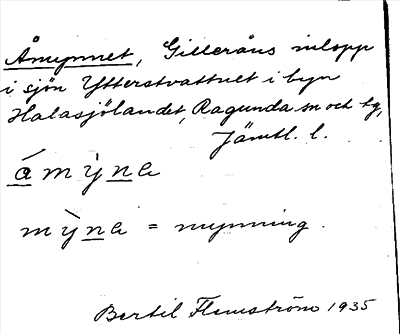 Åmynnet, Gilleråns inlopp
i sjön Ytterstvattnet i byn
Halasjölandet, Ragunda sn och tg,
Jämtl. l.
á m ỳ n e
m ỳ n e = mynning.
Bertil Flemström 1935